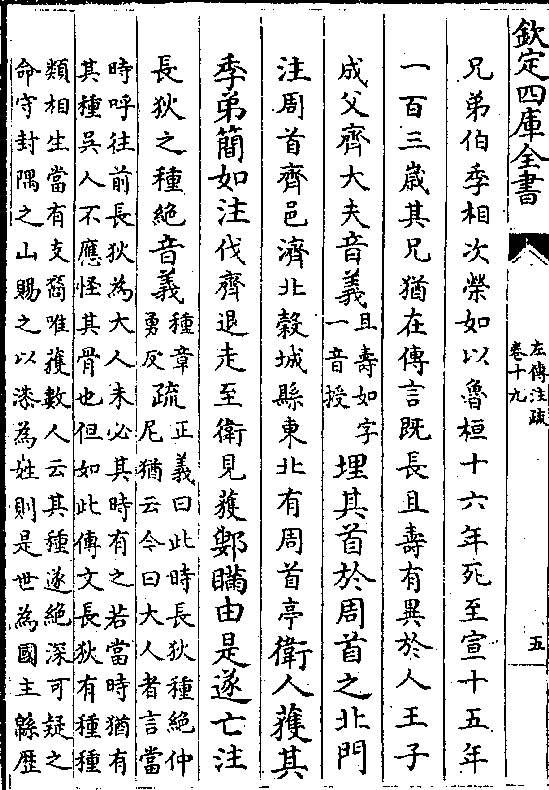 欽定四庫全書
左傳注疏
卷十九
五
兄弟伯季相次榮如以魯桓十六年死至宣十五年
一百三歲其兄猶在傳言既長且壽有異於人王子
成父齊大夫音義且壽如字
一音授埋其首於周首之北門
注周首齊邑濟北穀城縣東北有周首亭衛人獲其
季弟簡如注伐齊退走至衛見獲鄋瞞由是遂亡注
長狄之種絶音義種章
勇反疏正義曰此時長狄種絶仲
尼猶云今曰大人者言當
時呼往前長狄為大人未必其時有之若當時猶有
其種吳人不應怪其骨也但如此傳文長狄有種種
類相生當有支裔唯獲數人云其種遂絶深可疑之
命守封隅之山賜之以漆為姓則是世為國主綿歷